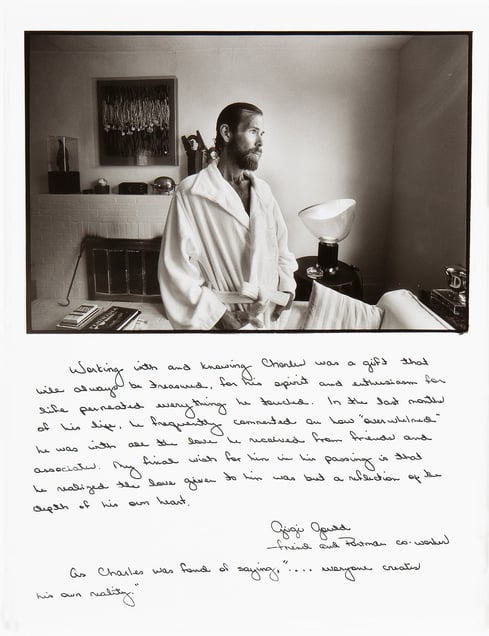 Working with and knowing Charles was a gift that
will always be treasured, for his spirit and enthusiasm for
life permeated everything he touched. In the last months
of his life, he frequently commented on how "overwhelmed"
he was with all the love he received from friends and
associates. My final wish for him in his passing is that
he realized the love given to him was but a reflection of the
depth of his own heart.
Gigi Gould
—friend and Portman co-worker
As Charles was fond of saying, ".... everyone creates
his own reality."